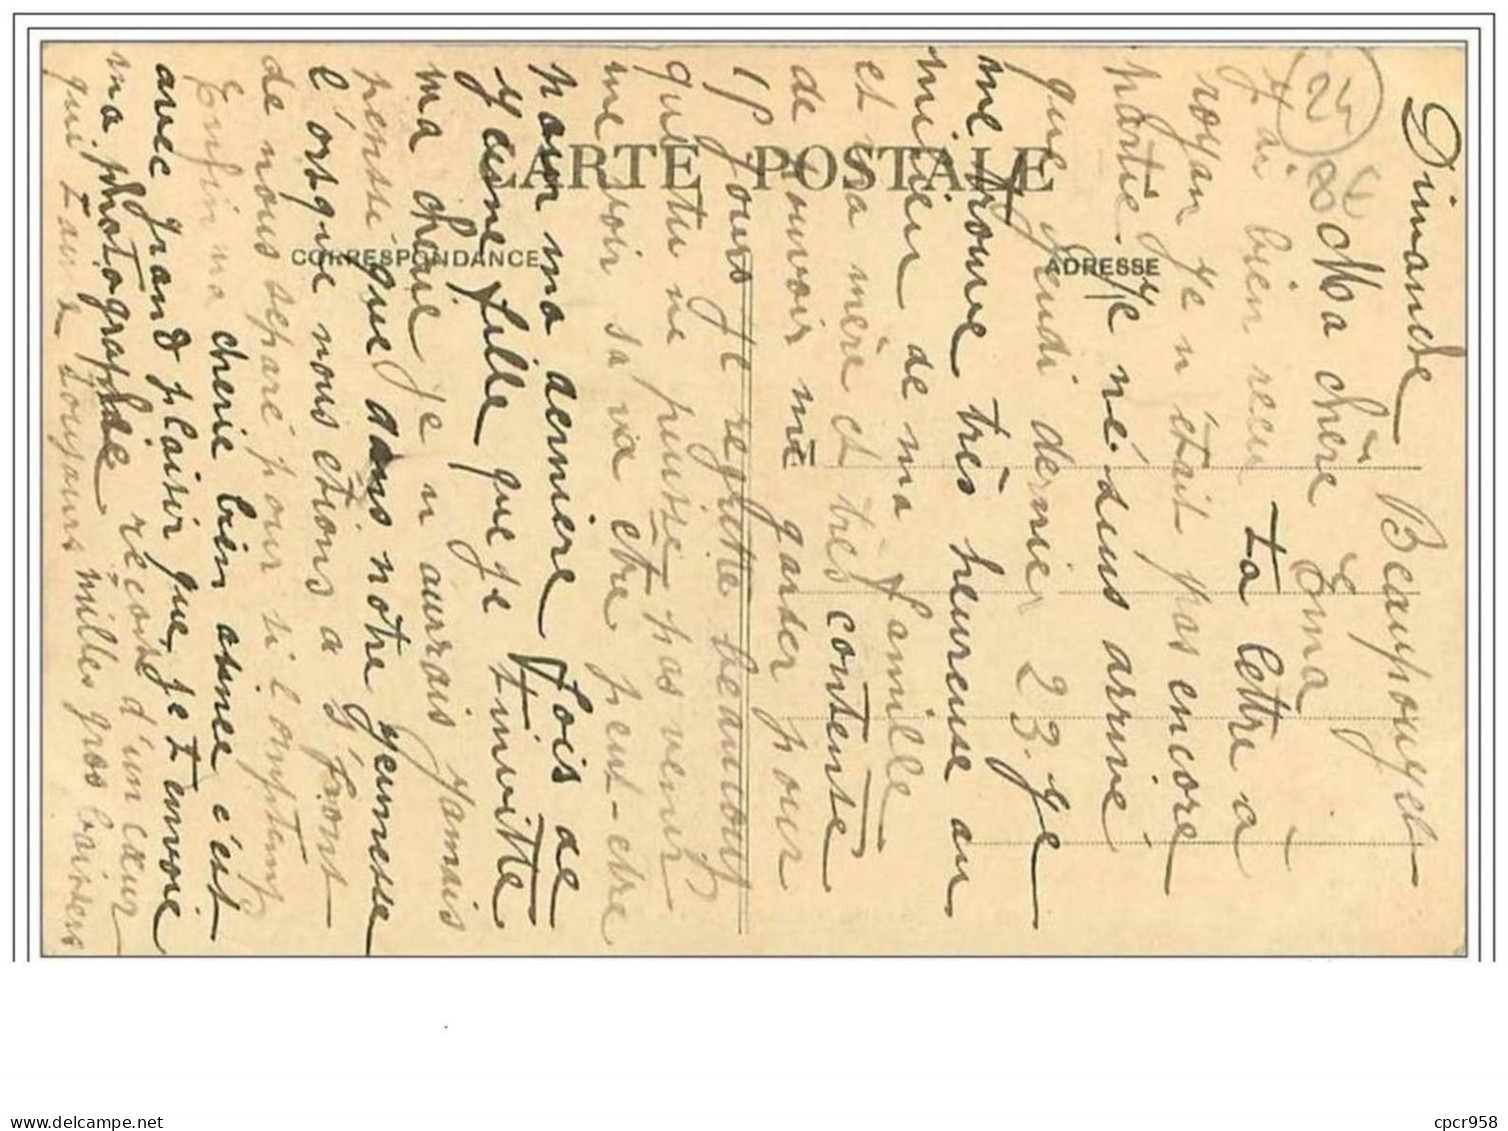 CARTE POSTALE
CORRESPONDANCE
ADRESSE
M
24
Dimanche Beaupouyet
Ma chère Ema
j'ai bien recu ta lettre a
royan je n'était pas encore
partie. je né suis arrivé
que jeudi dernier 23. je
me trouve très heureuse au
milieu de ma famille
et ma mère et très contente
de pouvoir me garder pour
15 jours je regrette beaucoup
que tu ne puisse pas venir
me voir sa va etre peut-etre
pour ma derniere fois de
jeune fille que je t'invitte
ma cherie je n'aurrais jamais
pensé que dans notre jeunesse
l'orsque nous étions a
de nous separé pour si l'ongtemp
Enfin ma cherie bien aimee c'est
avec grand plaisir que je t'envoie
ma photographie d'un cœur
qui t'aime toujours milles gros baisers
cpcr958
delcampe.net